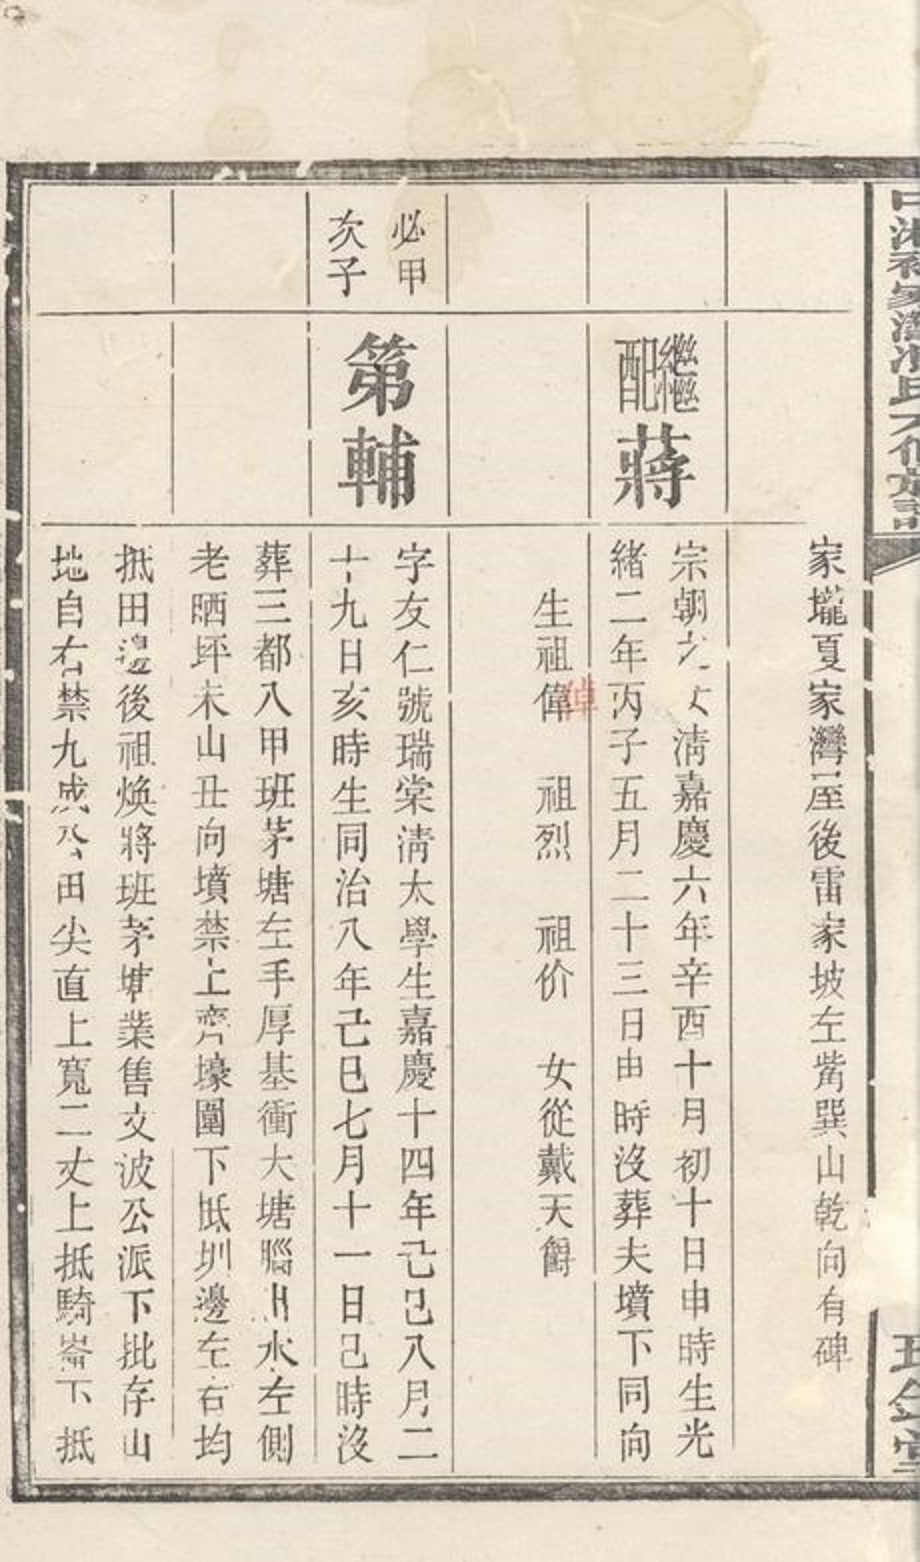 家壠夏家灣屋後雷家坡左嵴巽山乾向有碑
繼配蔣
宗朝之女清嘉慶六年辛酉十月初十日申時生光
緒二年丙子五月二十三日由時沒葬夫墳下同向
生祖偉 祖烈 祖价 女從戴天爵
倬
必甲
次子
第輔
字友仁號瑞棠清太學生嘉慶十四年己巳八月二
十九日亥時生同治八年己巳七月十一日己時沒
葬三都八甲班茅塘左手厚基衝大塘腦出水左側
老晒坪未山丑向墳禁上齊壕圍下坻圳邊左右均
抵田邊後祖煥將班茅塘業售文波公派下批存山
地自右禁九成公田尖直上寬二丈上抵騎崙下抵